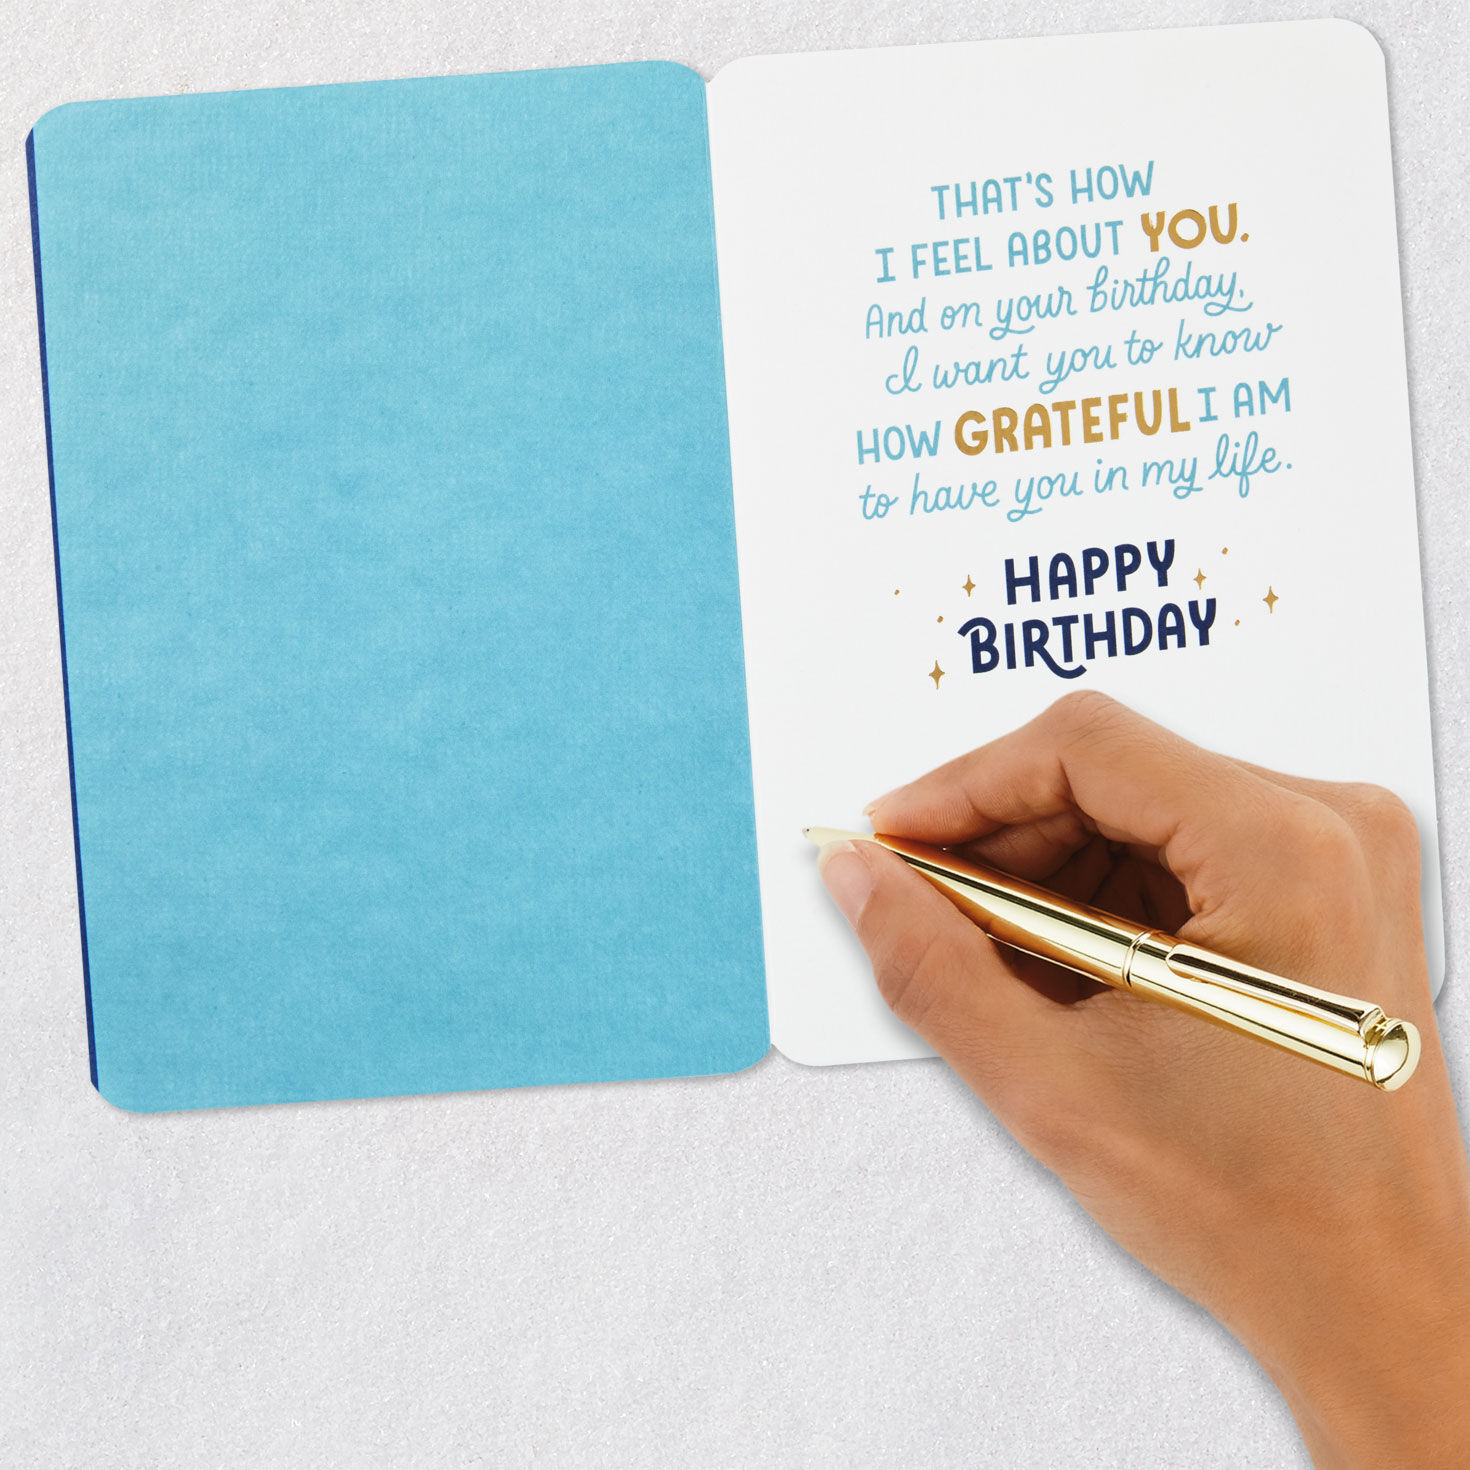 THAT'S HOW
I FEEL ABOUT YOU.
And on your birthday,
I want you to know
HOW GRATEFUL I AM
to have you in my life.
HAPPY
BIRTHDAY